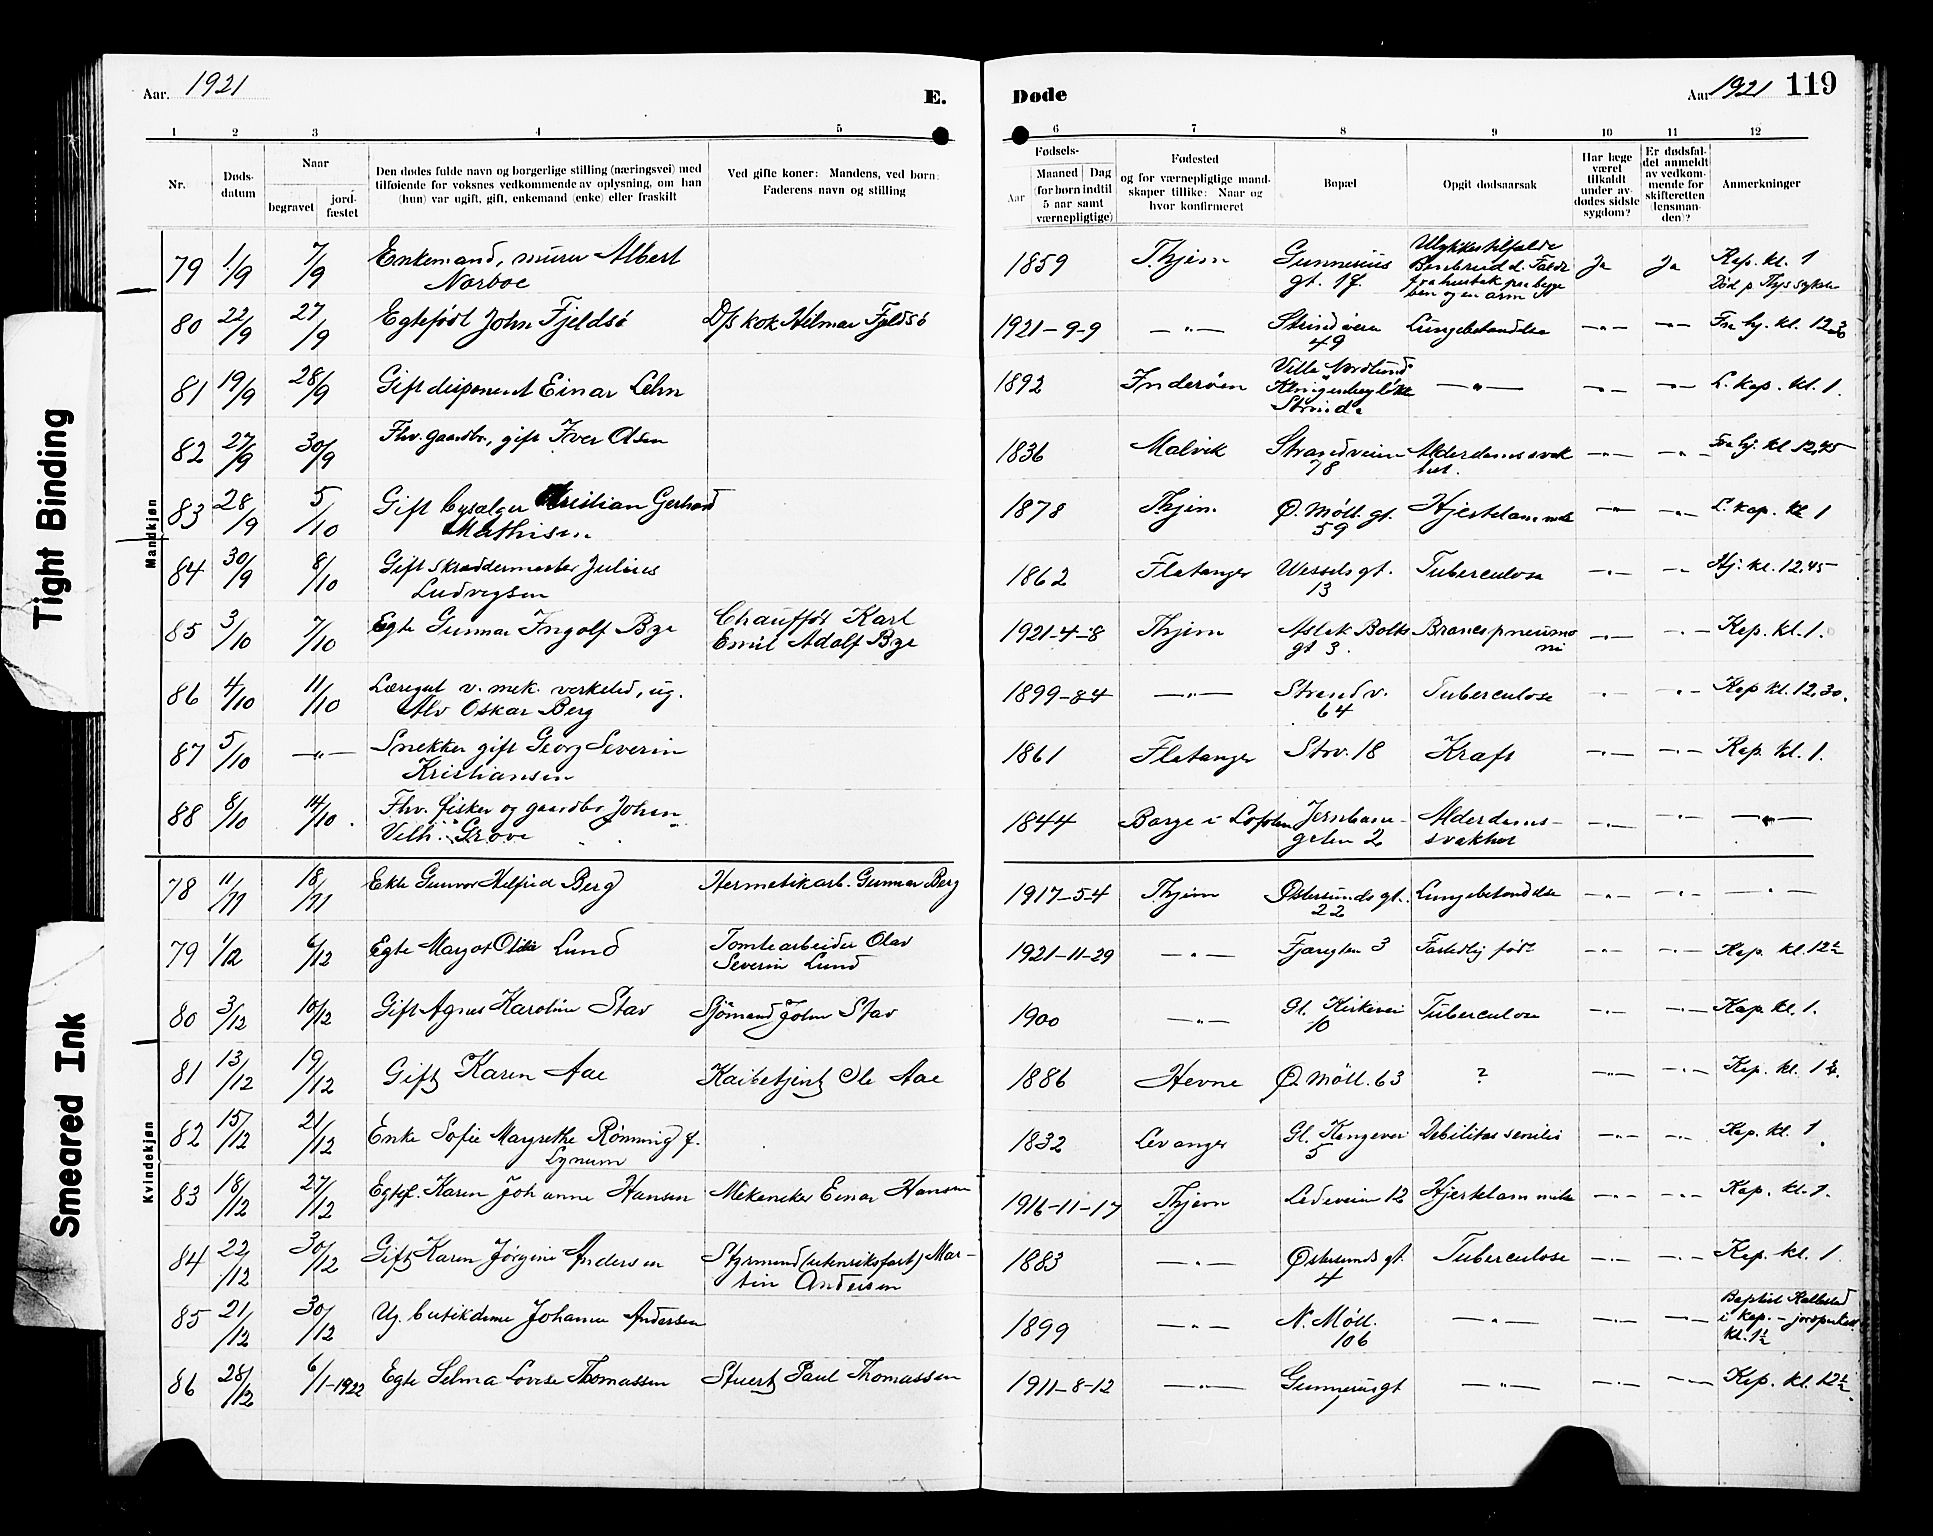 Tight Binding
Smeared Ink
Aar. 1921
E.
Døde
Aar 1921 119
1 2 3 4 5 6 7 8 9 10 11 12
Nr.
Døds-
datum
Naar
begravet
jord-
fæstet
Den dødes fulde navn og borgerlige stilling (næringsvei) med
tilføiende for voksnes vedkommende av oplysning, om han
(hun) var ugift, gift, enkemand (enke) eller fraskilt
Ved gifte koner: Mandens, ved børn:
Faderens navn og stilling
Fødsels-
Aar
Maaned Dag
(for børn indtil
5 aar samt
værnepligtige)
Fødested
og for værnepligtige mand-
skaper tillike: Naar og
hvor konfirmeret
Bopæl
Opgit dødsaarsak
Har læge
været
tilkaldt
under av-
dødes sidste
sygdom?
Er dødsfal-
det anmeldt
av vedkom-
mende for
skifteretten
(lensman-
den)?
Anmerkninger
Mandkjøn
79 1/9 7/9 Enkemand, murer Albert
Norboe
1859 Thjem Gunnerius
gt. Ulykkestilfælde
Benbrud d. Fald
Ja Ja Kap. kl. 1
80 22/9 27/9 Egtefødt John Fjeldsø D/s kok Hilmar Fjeldsø 1921-9-9 -"- Strindveien
49 Lungebetændelse -"- -"- Fra hj. kl. 12.30
81 19/9 28/9 Gift disponent Einar Lehn 1892 Inderøen Villa Nordlund
Klingenbergløkke
Strinda -"- -"- -"- L. kap. kl. 1.
82 27/9 30/9 Fhv. gaardbr., gift Iver Olsen 1836 Malvik Strandveien
78 Alderdomssvak
het. -"- -"- Fra hj. kl 12,45
83 28/9 5/10 Gift bysælger Kristian Gerhard
Mathisen 1878 Thjem Ø. Møll. gt.
59 Hjertelammelse -"- -"- L. kap. kl 1
84 30/9 8/10 Gift skræddermester Julius
Ludvigsen 1862 Flatanger Wessels gt.
13 Tuberculose -"- -"- Hj. kl. 12.45
85 3/10 7/10 Egte Gunnar Ingolf Bye Chauffør Karl
Emil Adolf Bye 1921-4-8 Thjem Aslak Bolts
gt 3. Broncopneumo
ni -"- -"- Kap. kl. 1.
86 4/10 11/10 Læregut v. mek. verksted, ug.
Alv Oskar Berg 1899-8-4 -"- Strandv.
64 Tuberculose -"- -"- Kap kl. 12.30.
87 5/10 -"- Snekker gift Georg Severin
Kristiansen 1861 Flatanger Strv. 18 Kræft -"- -"- Kap. kl. 1.
88 8/10 14/10. Fhv. fisker og gaardbr Johan
Vilh. Grove 1844 Borge i Lofoten Jernbane-
gaten 2 Alderdoms-
svakhet -"- -"- -"-
Kvindekjøn
78 11/11 18/11 Ekte Gunvor Helfrid Berg Hermetikarb. Gunnar Berg 1917-5-4 Thjem Østersunds gt.
22 Lungebetændelse -"- -"- -"-
79 1/12 6/12 Egte Margot Lund Tomtearbeider Olav
Severin Lund 1921-11-29 -"- Fjærgten 3 Fortidlig født -"- -"- Kap. kl. 12½
80 3/12 10/12 Gift Agnes Karoline Stav Sjömand John Stav 1900 -"- Gl. Kirkevei
10 Tuberculose -"- -"- Kap. kl. 1.
81 13/12 19/12 Gift Karen Aae Kaibetjent Ole Aae 1886 Hevne Ø. Møll. 63 ? -"- -"- Kap. kl. 1½.
82 15/12 21/12 Enke Sofie Margrethe Rönning f.
Lynum 1832 Levanger Gl. Kongevei
5 Debilitas senilis -"- -"- Kap. kl. 1.
83 18/12 27/12 Egtef. Karen Johanne Hansen Mekaniker Einar Hansen 1916-11-17 Thjem Ladeveien 12 Hjertelammelse -"- -"- Kap. kl. 1.
84 22/12 30/12 Gift Karen Jørgine Andersen Styrmand (utenriksfart) Mar-
tin Andersen 1883 -"- Østersunds gt.
4 Tuberculose -"- -"- Kap. kl. 1
85 21/12 30/12 Ug. butikdame Johanne Andersen 1899 -"- N. Møll.
106 -"- -"- -"- Baptist
i kap. -
kl. 1½
86 28/12 6/1-1922 Egte Selma Lovise Thomassen Stuert Paul Thomassen 1911-8-12 -"- Gunnerusgt
7 -"- -"- -"- Kap. kl. 12½.